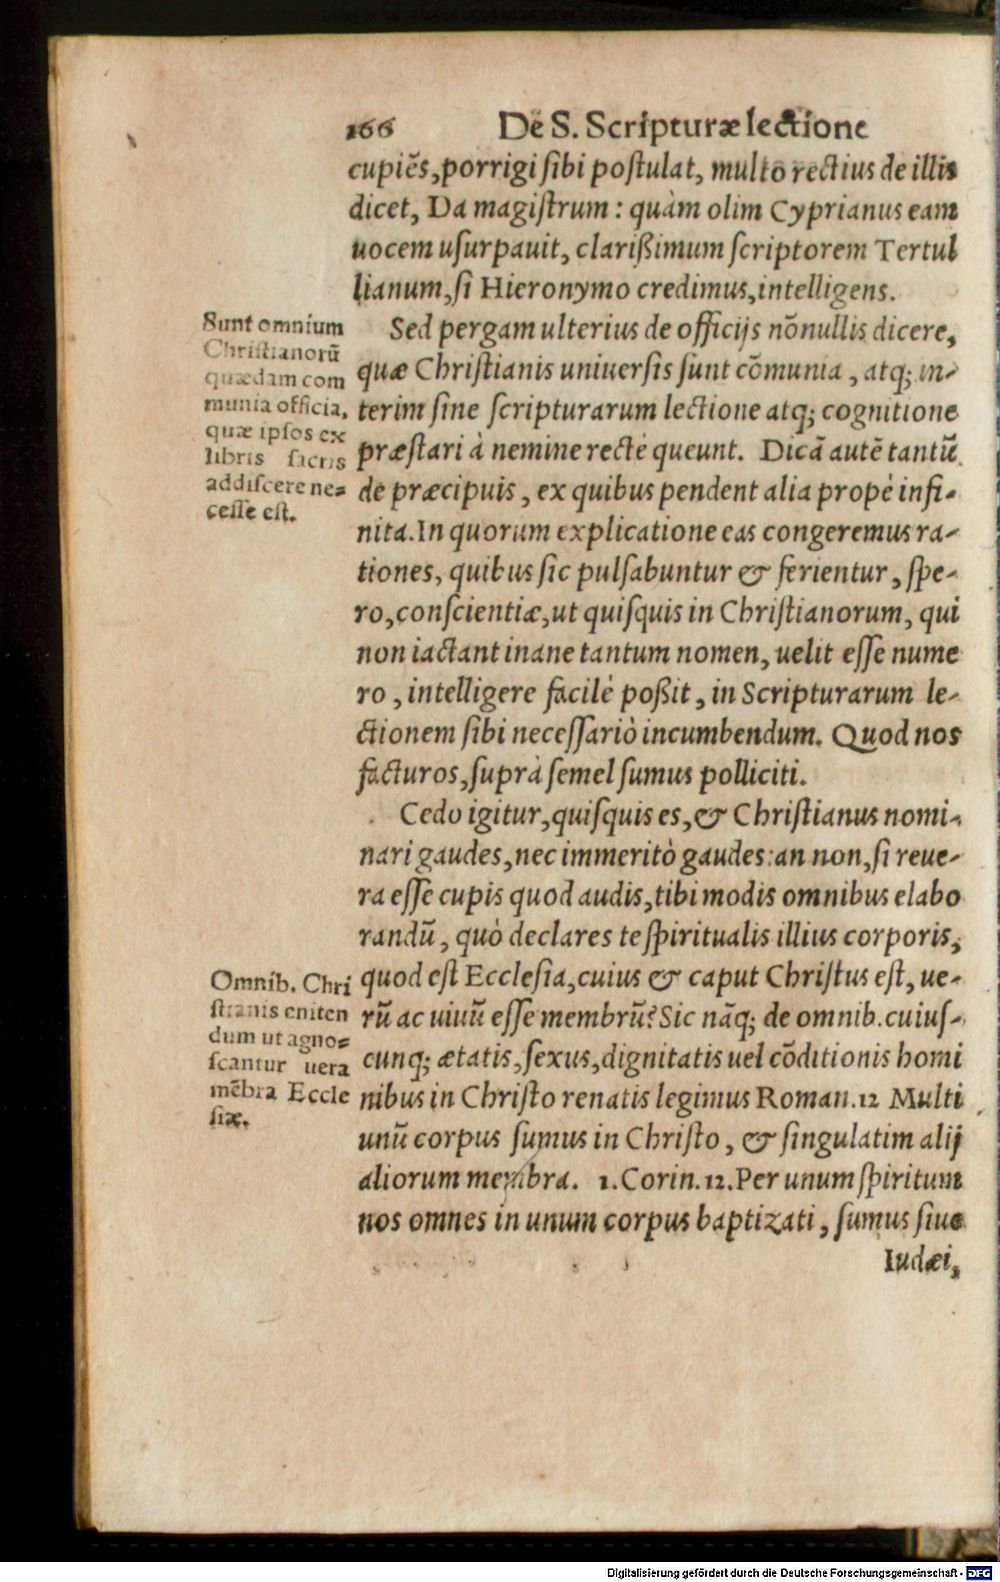 166 De S. Scripturæ lectione
cupiẽs, porrigi ſibi poſtulat, multo rectius de illis
dicet, Da magiſtrum: quàm olim Cyprianus eam
uocem uſurpauit, clarißimum ſcriptorem Tertul
lianum, ſi Hieronymo credimus, intelligens.
Sunt omnium
Chriſtianorũ
quædam com
munia officia,
quæ ipſos ex
libris ſacris
addiſcere ne=
ceſſe eſt.
Sed pergam ulterius de officijs nõnullis dicere,
quæ Chriſtianis uniuerſis ſunt cõmunia, atq; in-
terim ſine ſcripturarum lectione atq; cognitione
præſtari à nemine rectè queunt. Dicã autẽ tantũ
de præcipuis, ex quibus pendent alia propè infi-
nita. In quorum explicatione eas congeremus ra-
tiones, quibus ſic pulſabuntur & ferientur, ſpe-
ro, conſcientiæ, ut quiſquis in Chriſtianorum, qui
non iactant inane tantum nomen, uelit eſſe nume
ro, intelligere facilè poßit, in Scripturarum le-
ctionem ſibi neceſſariò incumbendum. Quod nos
facturos, ſuprà ſemel ſumus polliciti.
Cedo igitur, quiſquis es, & Chriſtianus nomi-
nari gaudes, nec immeritò gaudes: an non, ſi reue-
ra eſſe cupis quod audis, tibi modis omnibus elabo
randũ, quò declares te ſpiritualis illius corporis,
Omnib. Chri
ſtianis eniten
dum ut agno=
ſcantur uera
mẽbra Eccle
ſiæ.
quod eſt Eccleſia, cuius & caput Chriſtus eſt, ue-
rũ ac uiuũ eſſe membrũ? Sic nãq; de omnib. cuiuſ-
cunq; ætatis, ſexus, dignitatis uel cõditionis homi
nibus in Chriſto renatis legimus Roman. 12 Multi
unũ corpus ſumus in Chriſto, & ſingulatim alij
aliorum membra. 1. Corin. 12. Per unum ſpiritum
nos omnes in unum corpus baptizati, ſumus ſiue
Iudæi,
Digitalisierung gefördert durch die Deutsche Forschungsgemeinschaft - DFG